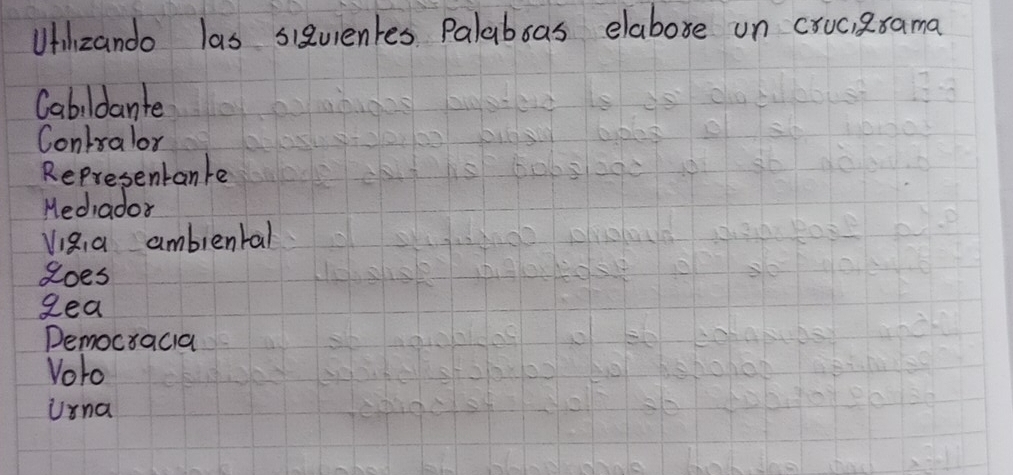 Utilizando las siguientes Palabras elabore un crucigrama
Cabildante
Contralor
Representante
Mediador
Vigia ambiental
goes
gea
Democracia
Voto
Urna